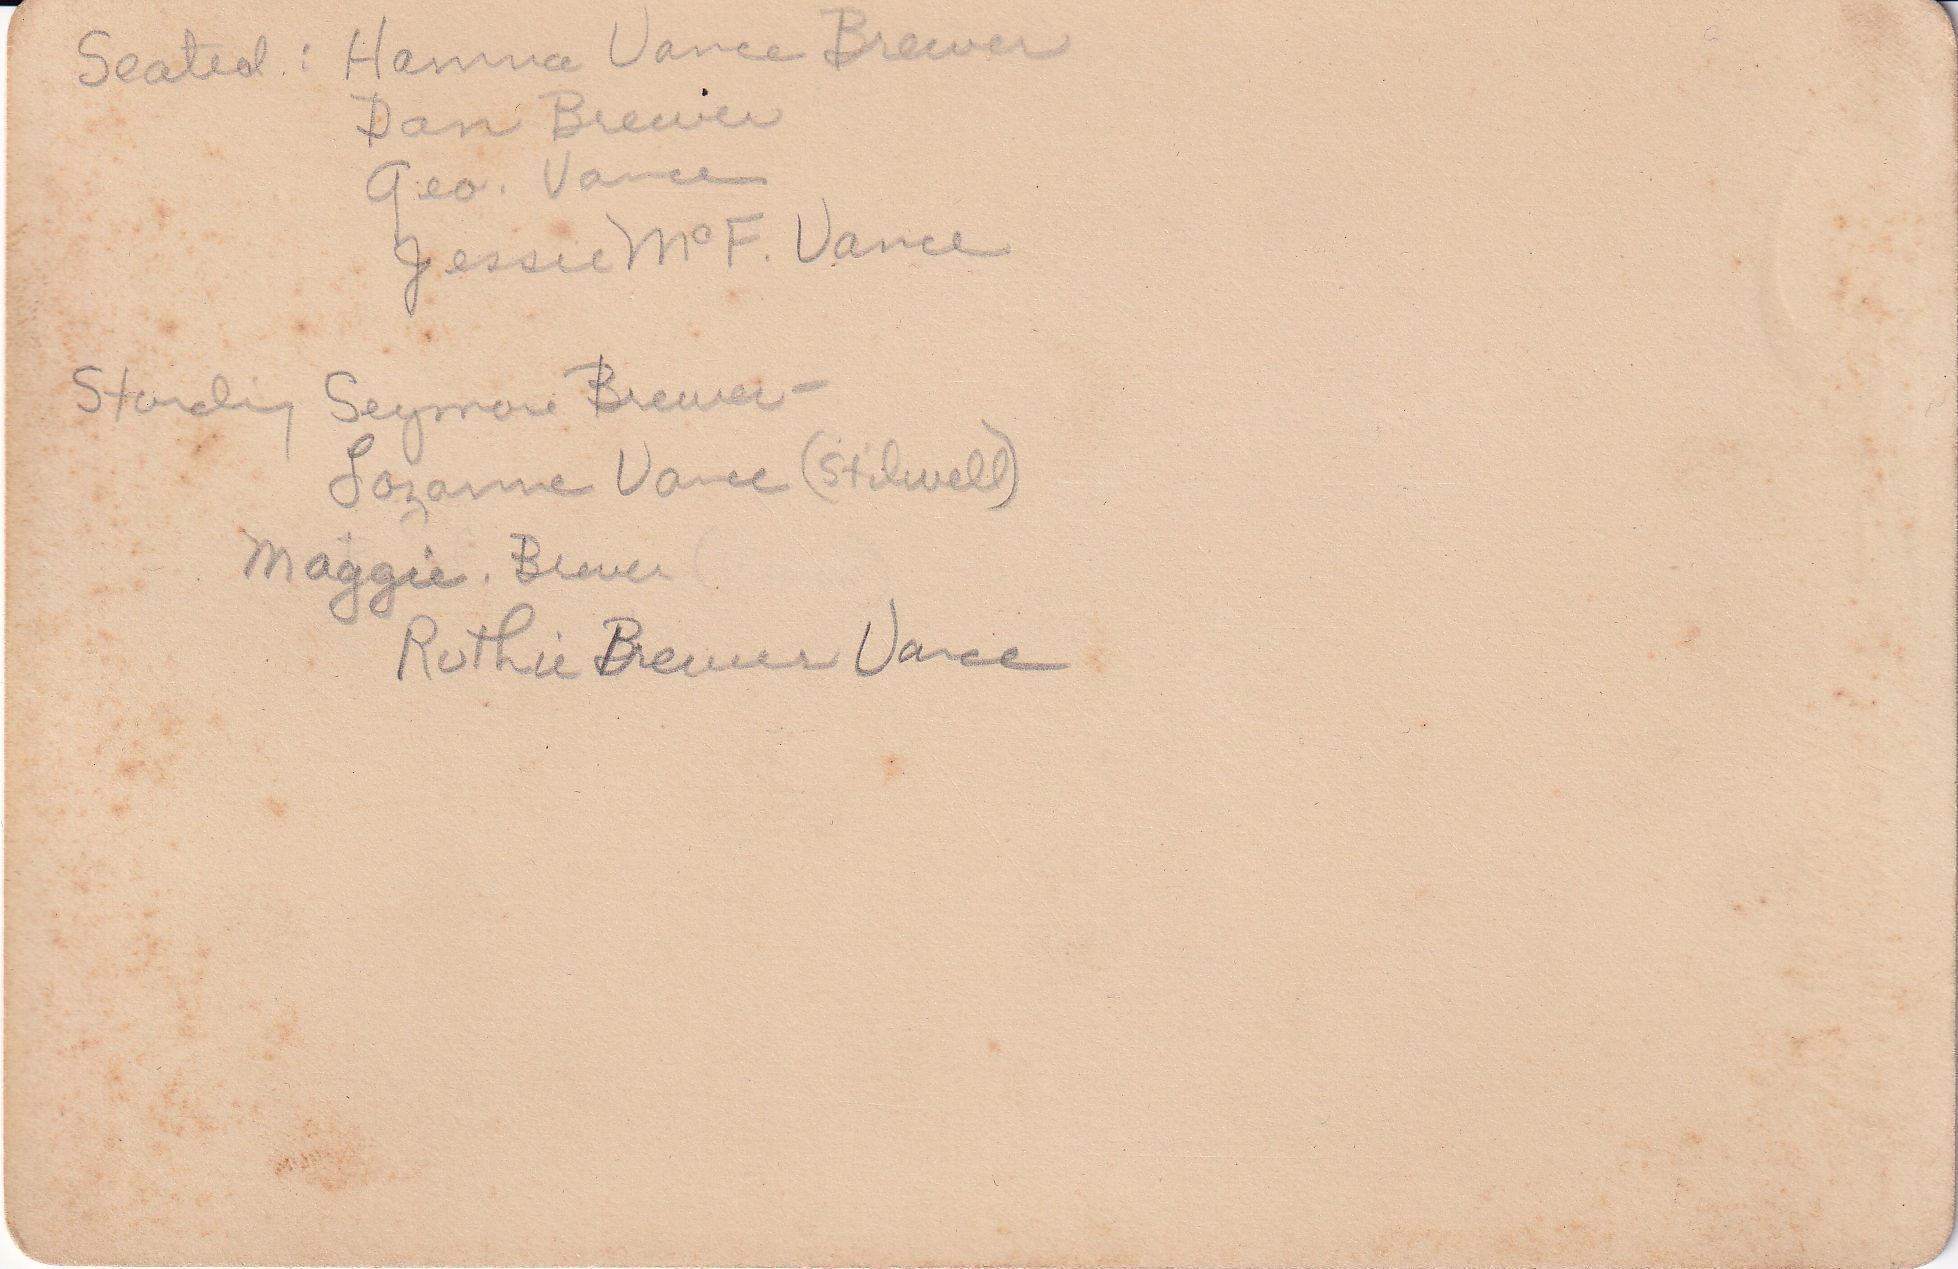 Seated : Hanna Vance Brewer
Dan Brewer
Geo. Vance
Jessie McF. Vance
Standing Seymore Brewer-
Lozanne Vance (Stilwell)
Maggie. Brewer (
Ruthie Brewer Vance